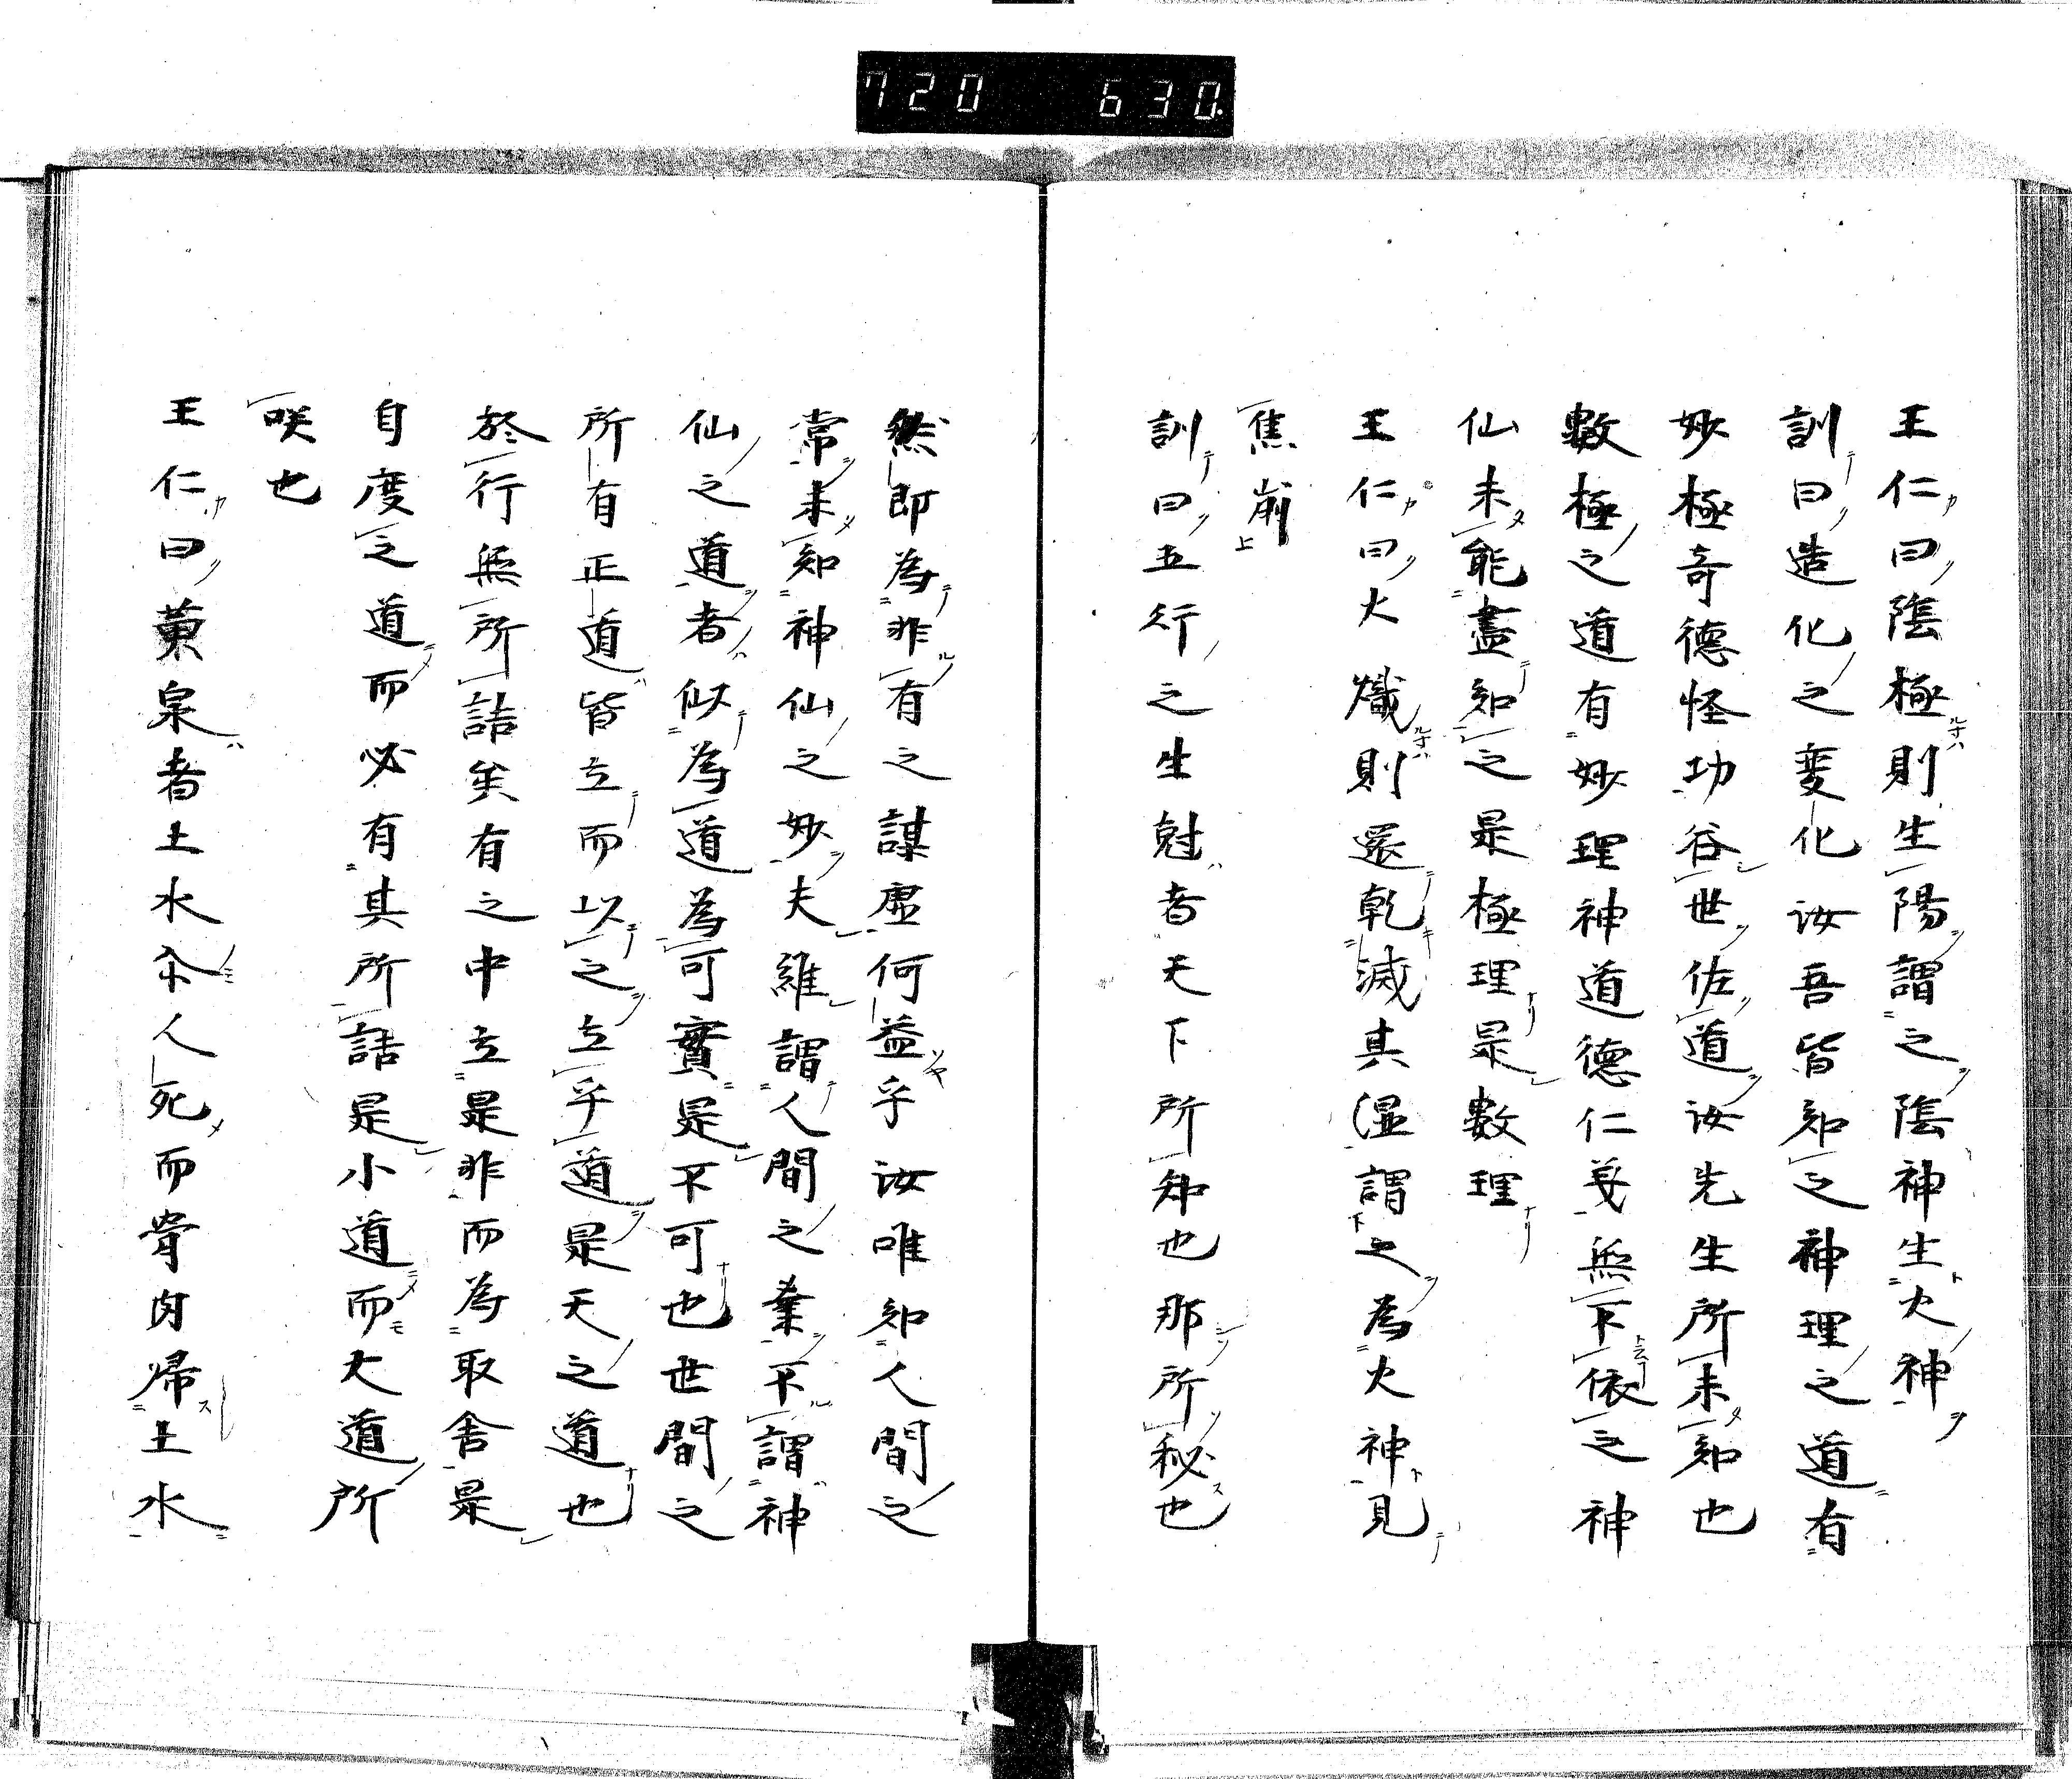 720 630.
王仁曰陰極則生陽謂之陰神生火神
訓曰造化之変化汝吾皆知之神理之道有
妙極奇徳怪功谷世佐道汝先生所未知也
數極之道有妙理神道徳仁義無下依之神
仙未能盡知之是極理是數理
王仁曰火熾則還乾滅其湿謂之為火神見
焦崩
訓曰五行之生尅者天下所知也那所秘也
然即為非有之謀虚何益乎汝唯知人間之
常未知神仙之妙夫維謂人間之業不謂神
仙之道者似為道為可實是不可也世間之
所有正道皆立而以之立乎道是天之道也
於行無所詰矣有之中立是非而為取舎是
自度之道而必有其所詰是小道而大道所
咲也
王仁曰黄泉者土水人死而骨肉帰土水